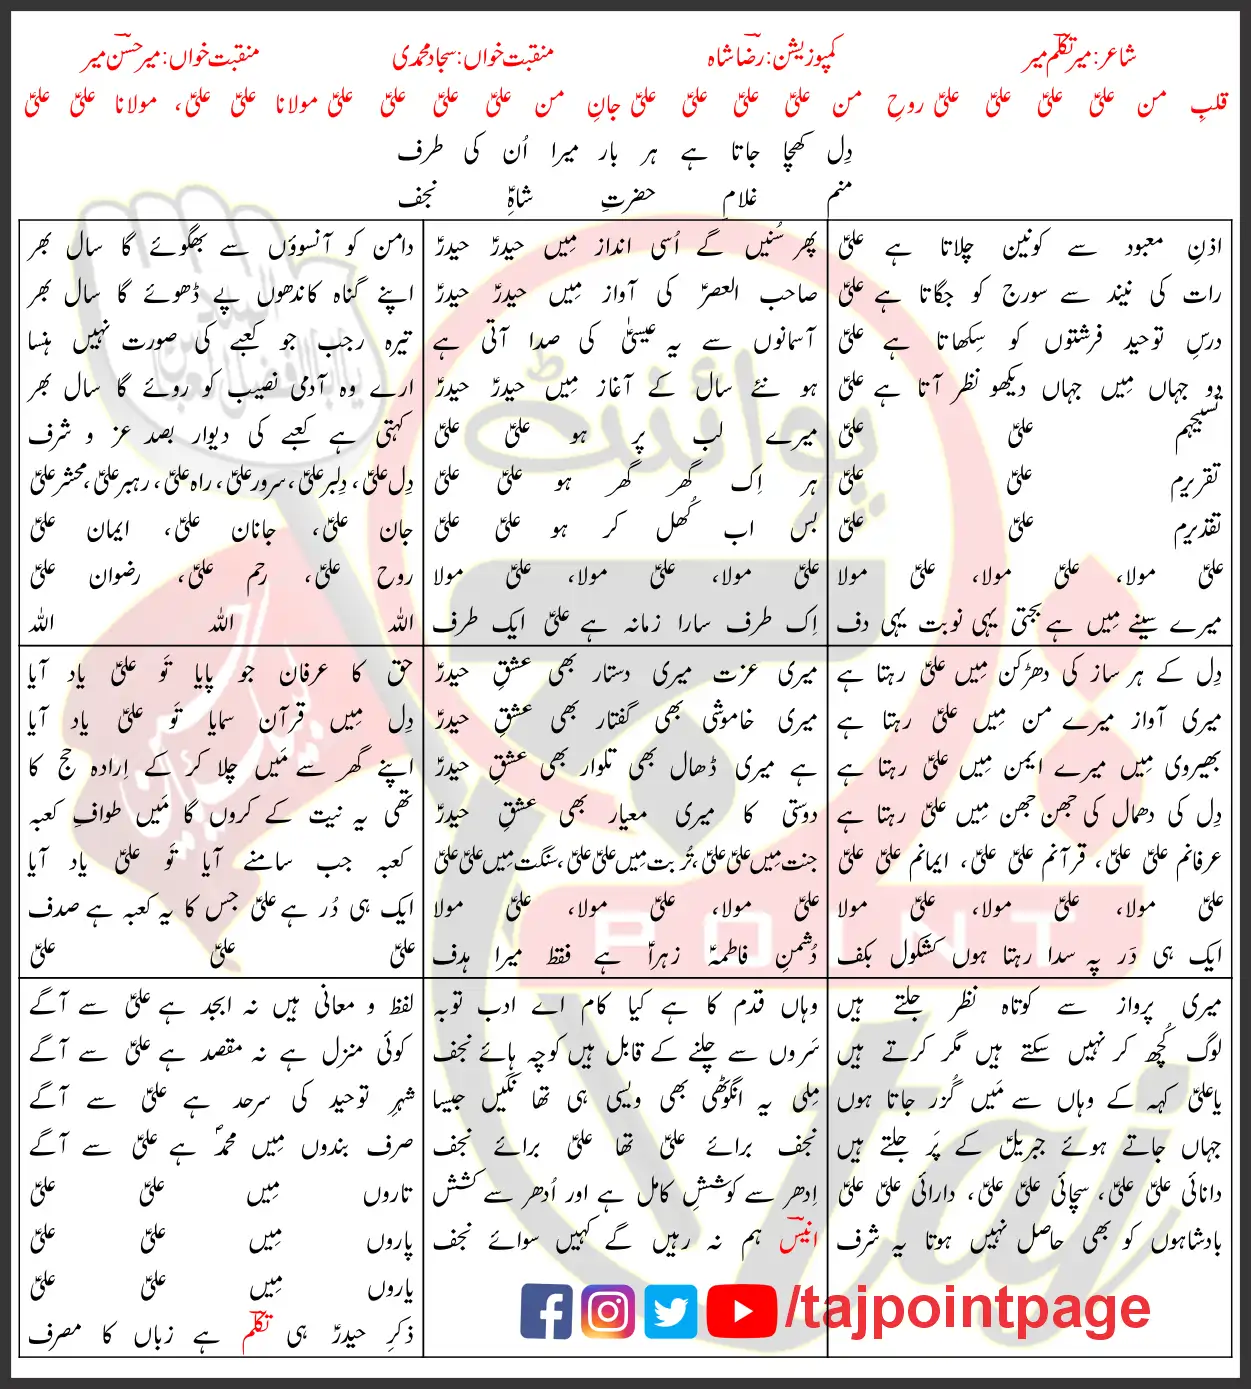 شاعر: میر تکلمؔ میر کمپوزیشن: رضاؔ شاہ منقبت خواں: سجاد محمدی منقبت خواں: میر حسنؔ میر
قلبِ من علیؑ علیؑ علیؑ علیؑ روحِ من علیؑ علیؑ علیؑ علیؑ جانِ من علیؑ علیؑ علیؑ علیؑ مولانا علیؑ علیؑ، مولانا علیؑ علیؑ
دِل کھچا جاتا ہے ہر بار میرا اُن کی طرف
منم غلامِ حضرتِ شاہِؑ نجف
اذنِ معبود سے کونین چلاتا ہے علیؑ
رات کی نیند سے سورج کو جگاتا ہے علیؑ
درسِ توحید فرشتوں کو سِکھاتا ہے علیؑ
دو جہاں مِیں جہاں دیکھو نظر آتا ہے علیؑ
تسبیحم علیؑ علیؑ
تقریرم علیؑ علیؑ
تقدیرم علیؑ علیؑ
علیؑ مولا، علیؑ مولا، علیؑ مولا
میرے سینے مِیں ہے بجتی یہی نوبت یہی دف
پھر سُنیں گے اُسی انداز مِیں حیدرؑ حیدرؑ
صاحب العصرؑ کی آواز مِیں حیدرؑ حیدرؑ
آسمانوں سے یہ عیسیٰؑ کی صدا آتی ہے
ہو نئے سال کے آغاز مِیں حیدرؑ حیدرؑ
میرے لب پر ہو علیؑ علیؑ
ہر اِک گھر گھر ہو علیؑ علیؑ
بس اب کُھل کر ہو علیؑ علیؑ
علیؑ مولا، علیؑ مولا، علیؑ مولا
اِک طرف سارا زمانہ ہے علیؑ ایک طرف
دامن کو آنسوؤں سے بھگوئے گا سال بھر
اپنے گناہ کاندھوں پے ڈھوئے گا سال بھر
تیرہ رجب جو کعبے کی صورت نہیں ہنسا
ارے وہ آدمی نصیب کو روئے گا سال بھر
کہتی ہے کعبے کی دیوار بصد عز و شرف
دِل علیؑ، دِلبر علیؑ، سرور علیؑ، راہ علیؑ، رہبر علیؑ، محشر علیؑ
جان علیؑ، جانان علیؑ، ایمان علیؑ
روح علیؑ، رحم علیؑ، رضوان علیؑ
اللہ اللہ اللہ
دِل کے ہر ساز کی دھڑکن مِیں علیؑ رہتا ہے
میری آواز میرے من مِیں علیؑ رہتا ہے
بھیروی مِیں میرے ایمن مِیں علیؑ رہتا ہے
دِل کی دھمال کی جھن جھن مِیں علیؑ رہتا ہے
عرفانم علیؑ علیؑ، قرآنم علیؑ علیؑ، ایمانم علیؑ علیؑ
علیؑ مولا، علیؑ مولا، علیؑ مولا
ایک ہی دَر پہ سدا رہتا ہوں کشکول بکف
میری عزت میری دستار بھی عشقِ حیدرؑ
میری خاموشی بھی گفتار بھی عشقِ حیدرؑ
ہے میری ڈھال بھی تلوار بھی عشقِ حیدرؑ
دوستی کا میری معیار بھی عشقِ حیدرؑ
جنت مِیں علیؑ علیؑ، تُربت مِیں علیؑ علیؑ، سنگت مِیں علیؑ علیؑ
علیؑ مولا، علیؑ مولا، علیؑ مولا
دُشمنِ فاطمہؑ زہراؑ ہے فقط میرا ہدف
حق کا عرفان جو پایا تَو علیؑ یاد آیا
دِل مِیں قرآن سمایا تَو علیؑ یاد آیا
اپنے گھر سے مَیں چلا کر کے اِرادہ حج کا
تھی یہ نیت کے کروں گا مَیں طوافِ کعبہ
کعبہ جب سامنے آیا تَو علیؑ یاد آیا
ایک ہی دُر ہے علیؑ جس کا یہ کعبہ ہے صدف
علیؑ علیؑ علیؑ
میری پرواز سے کوتاہ نظر جلتے ہیں
لوگ کُچھ کر نہیں سکتے ہیں مگر کرتے ہیں
یا علیؑ کہہ کے وہاں سے مَیں گُزر جاتا ہوں
جہاں جاتے ہوئے جبریلؑ کے پَر جلتے ہیں
دانائی علیؑ علیؑ، سچائی علیؑ علیؑ، دارائی علیؑ علیؑ
بادشاہوں کو بھی حاصل نہیں ہوتا یہ شرف
وہاں قدم کا ہے کیا کام اے ادب توبہ
سَروں سے چلنے کے قابل ہیں کوچہ ہائے نجف
مِلی یہ انگوٹھی بھی ویسی ہی تھا نگیں جیسا
نجف برائے علیؑ تھا علیؑ برائے نجف
اِدھر سے کوششِ کامل ہے اور اُدھر سے کشش
انیسؔ ہم نہ رہیں گے کہیں سوائے نجف
لفظ و معانی ہیں نہ ابجد ہے علیؑ سے آگے
کوئی منزل ہے نہ مقصد ہے علیؑ سے آگے
شہرِ توحید کی سرحد ہے علیؑ سے آگے
صرف بندوں مِیں محمدؐ ہے علیؑ سے آگے
تاروں مِیں علیؑ علیؑ
پاروں مِیں علیؑ علیؑ
یاروں مِیں علیؑ علیؑ
ذکرِ حیدرؑ ہی تکلمؔ ہے زباں کا مصرف
/tajpointpage
پوائنٹ
POINT
taj